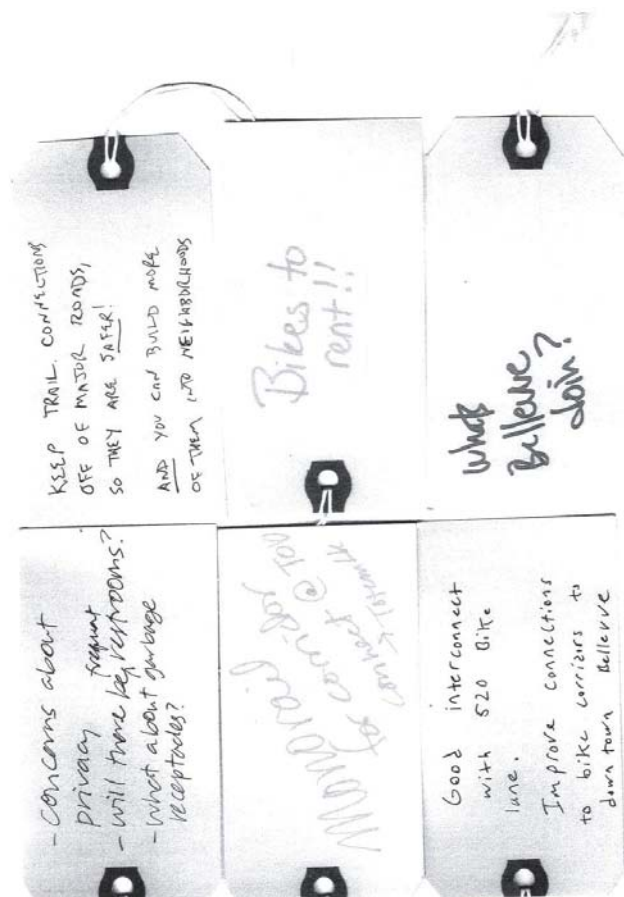 KEEP TRAIL CONNECTIONS
OFF OF MAJOR ROADS,
SO THEY ARE SAFER!
AND YOU CAN BUILD MORE
OF THEM INTO NEIGHBORHOODS
Bikes to
rent!!
Whats
Bellevue
doin?
- concerns about
privacy
- will there be frequent restrooms?
- what about garbage
receptacles?
Monorail
for corridor
connect @ TOD
Good interconnect
with 520 Bike
lane.
Improve connections
to bike corrizors to
down town Bellevue